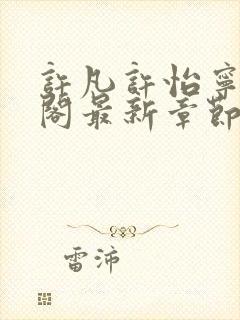 許凡許怡寧
閣最新章節
雷沛